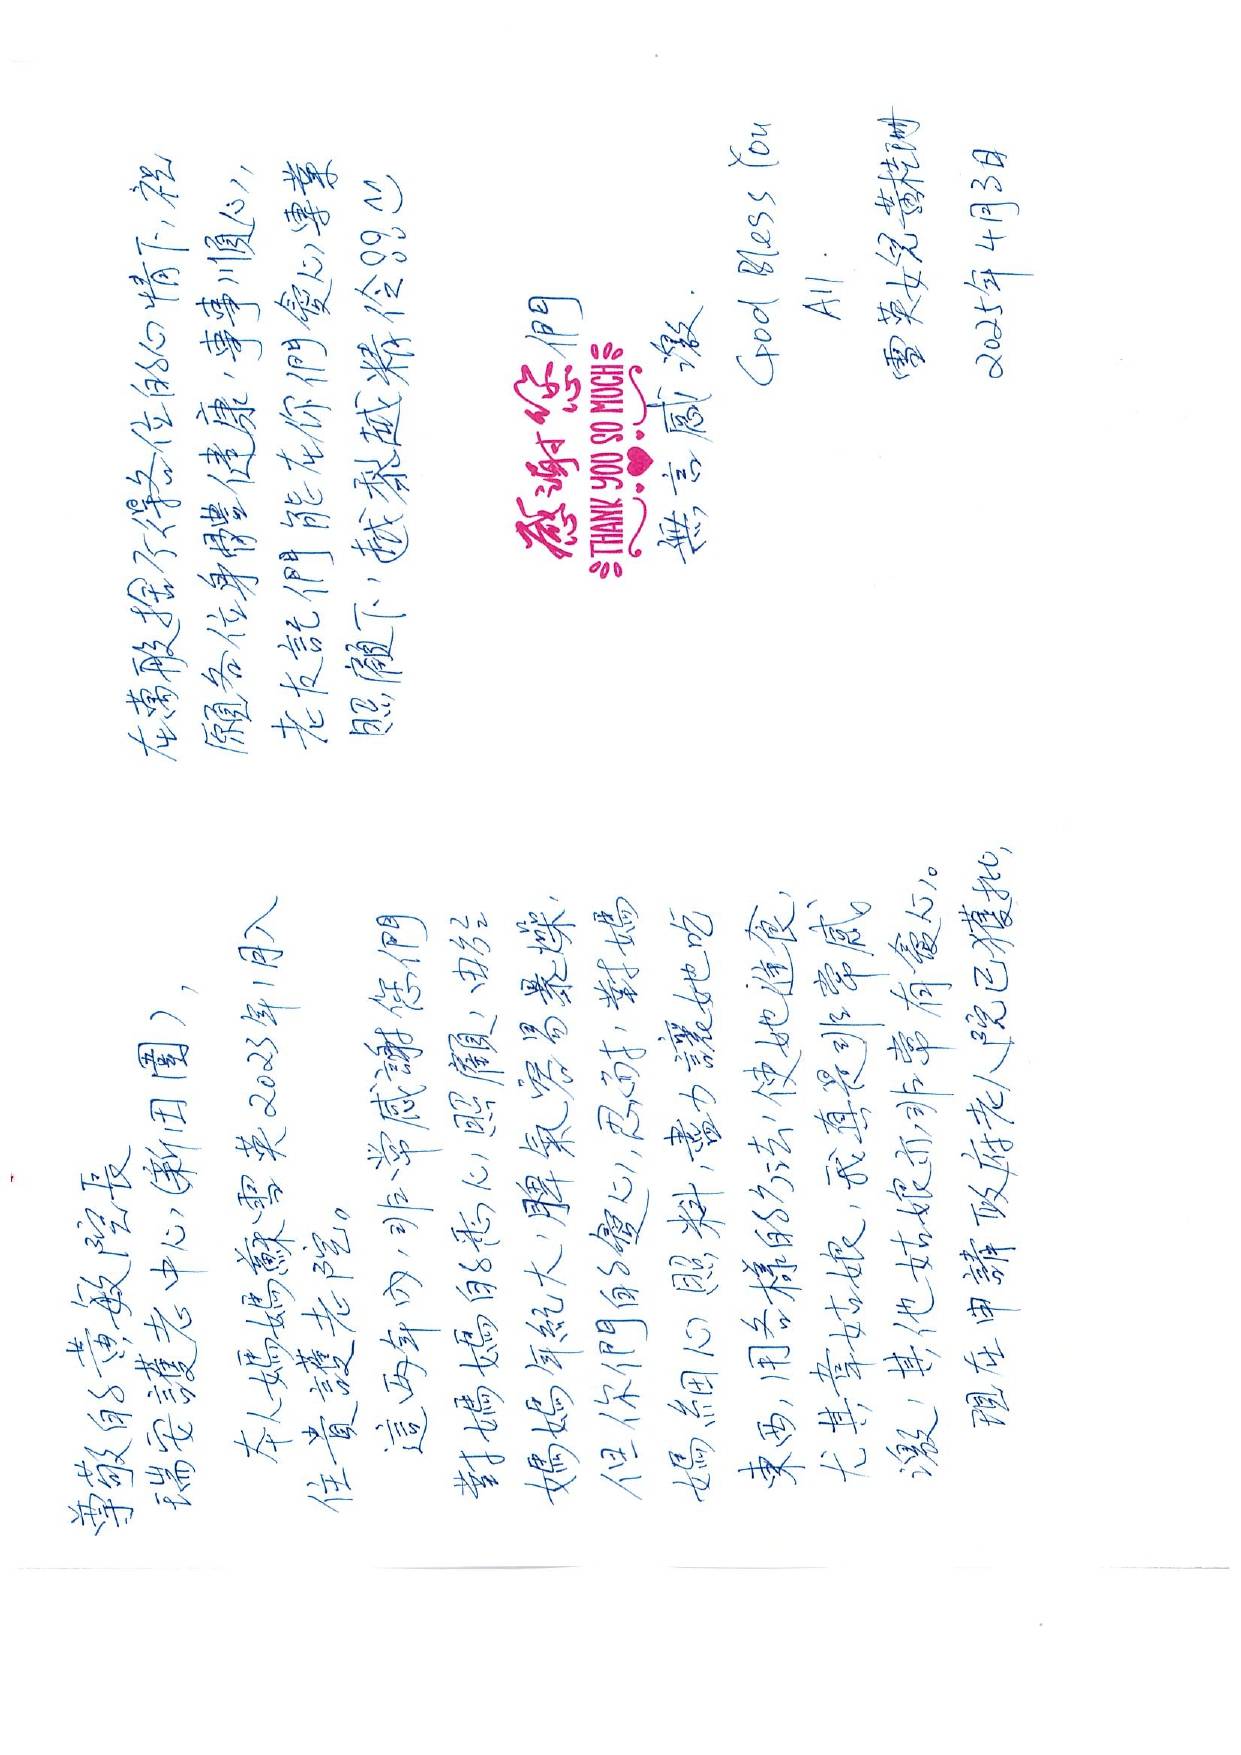 尊敬的黃敏院長
瑞安護老中心(新田圍),
本人媽媽蘇雪英2023年1月入
住貴護老院。
這兩年內,非常感謝您們
對媽媽的悉心照顧,由於
媽媽年紀大,脾氣容易暴燥,
但你們的愛心,忍耐,對媽
媽細心照料,盡力讓她吃
東西,用各樣的方法,使她進食,
尤其韋姑娘,我真是非常感
激,其他姑娘亦非常有愛心。
現在申請政府老人院已獲批,
在萬般捨不得各位的心情下,祝
願各位身體健康,事事順心,
老友記們能在你們愛心專業
照顧下,越黎越精伶99
感謝您們
THANK YOU SO MUCH
無言感激.
God Bless You
All.
雪英女兒黃桂
2025年4月3日